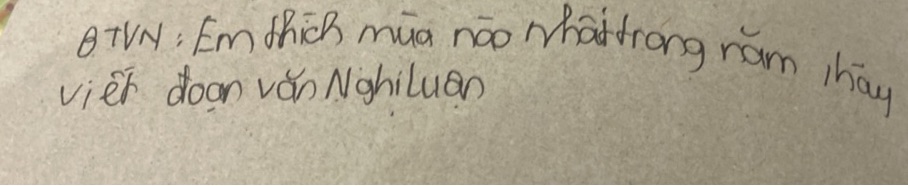 BTVN: Em thích mùa nào nhất trong năm hãy
viết đoạn văn Nghị luận